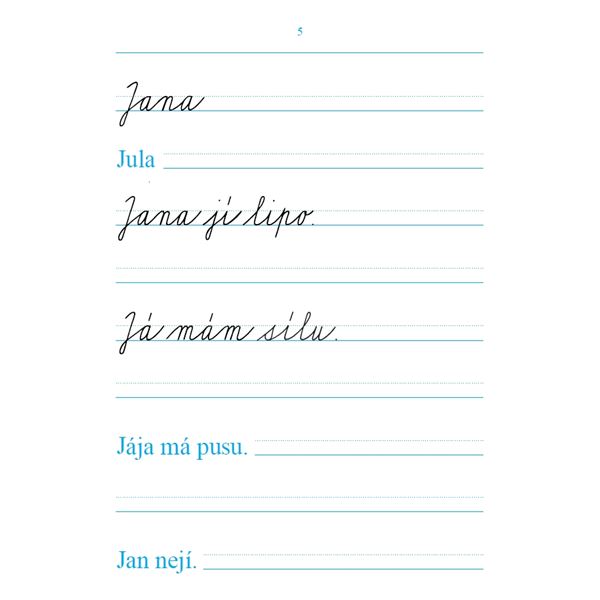 5
Jana
Jula
Jana jí lipo.
Já mám sílu.
Jája má pusu.
Jan nejí.